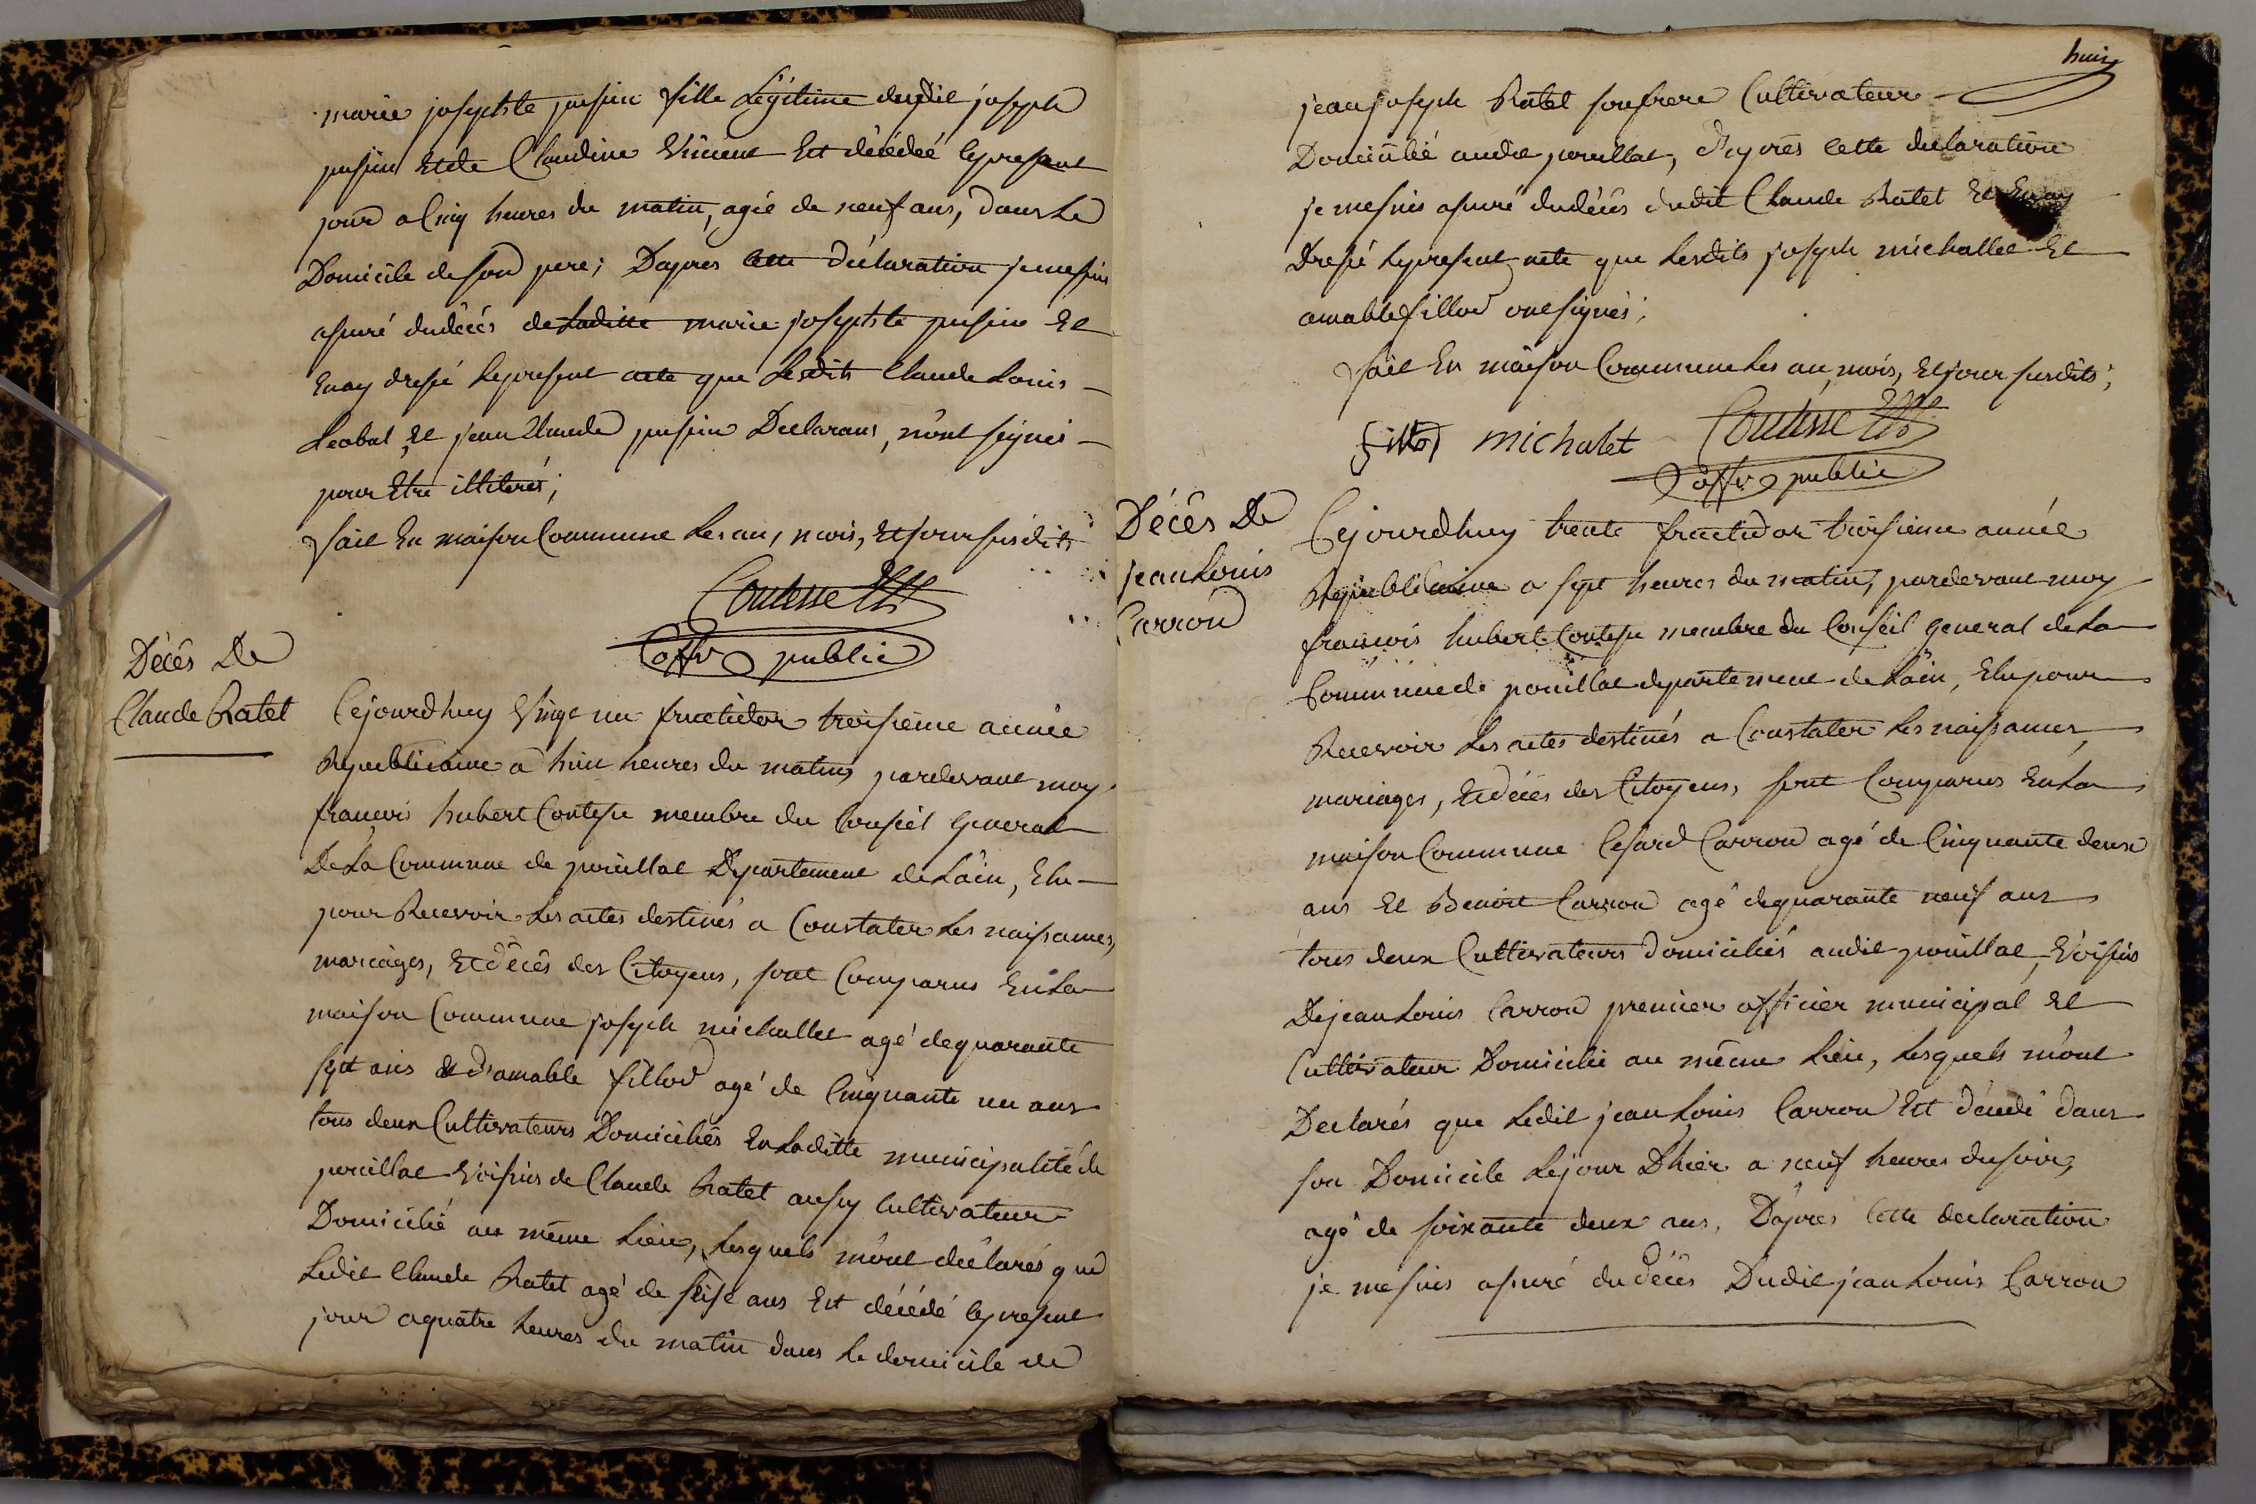 marie josephte pusin fille Légitime dudit joseph
pusin Et de Claudine Vincent Est décédée le present
jour a Cinq heures du matin, agée de neuf ans, dans Le
Domicile de son pere; Dapres cette déclaration je me suis
assuré du décés de Laditte marie josephte pusin Et
En ay dressé Le present acte que Lesdits Claude Louis
Leobal, Et jean Claude pusin Declarans, n'ont signés
pour Etre illiterés;
fait En maison Commune Les an, mois, Et jour susdits
Contesse
offr public
Décés De
Claude Ratet
Cejourdhuy Vingt un fructidor troisieme année
Republicaine a huit heures du matin pardevant moy
francois hubert Contesse membre du Conseil General
De La Commune de pouillat Departement de Lain, Elu
pour Recevoir Les actes destinés a Constater Les naissances,
mariages, Et décés des Citoyens, sont Comparus En La
maison Commune joseph michallet agé de quarante
sept ans Et amable fillod agé de Cinquante un ans
tous deux Cultivateurs Domiciliés En Laditte municipalité de
pouillat Voisins de Claude Ratet aussy Cultivateur
Domicilié au même Lieu, Lesquels m'ont déclarés que
Ledit Claude Ratet agé de seise ans Est décédé le present
jour a quatre heures du matin dans Le domicile de
huit
jean joseph Ratet son frere Cultivateur
Domicilié audit pouillat, D'aprés cette declaration
je me suis assuré du décés dudit Claude Ratet Et En ay
Dressé Le present acte que Lesdits joseph michallet Et
amable fillod ont signés;
fait En maison Commune Les an, mois, Et jour susdits;
fillod michalet Contesse
offr public
Décés De
jean Louis
Carron
Cejourdhuy trente fructidor troisieme année
Republicaine a sept heures du matin, pardevant moy
francois hubert Contesse membre du Conseil General de La
Commune de pouillat departement de Lain, Elu pour
Recevoir Les actes destinés a Constater Les naissances,
mariages, Et décés des Citoyens, sont Comparus En La
maison Commune Cesard Carron agé de Cinquante deux
ans Et Benoit Carron agé de quarante neuf ans
tous deux Cultivateurs Domiciliés audit pouillat, Voisins
De jean Louis Carron premier officier municipal Et
Cultivateur Domicilié au même Lieu, Lesquels m'ont
Declarés que Ledit jean Louis Carron Est décédé dans
son Domicile Le jour D'hier a neuf heures du soir,
agé de soixante deux ans, D'apres cette declaration
je me suis assuré du décés Dudit jean Louis Carron